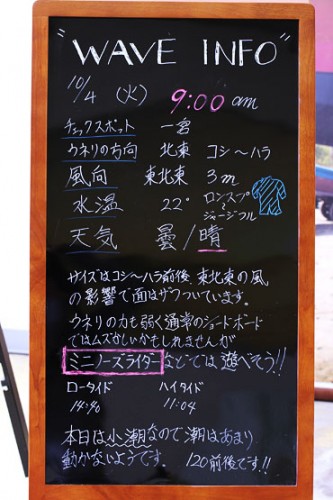 "WAVE INFO"
10/4 (火) 9:00 am
チェックスポット 一宮
ウネリの方向 北東 コシ〜ハラ
風向 東北東 3m
水温 22° ロンスプ&ジャージフル
天気 曇/晴
サイズはコシ〜ハラ前後、東北東の風
の影響で面はザワついています。
ウネリの力も弱く通常のショートボード
ではムズかしいかもしれませんが
ミニノーズライダーなどでは遊べそう!!
ロータイド ハイタイド
14:40 11:04
本日は小潮なので潮はあまり
動かないようです。 120前後です!!